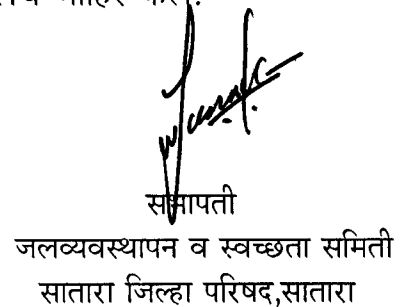 जाहिर केले.
सभापती
जलव्यवस्थापन व स्वच्छता समिती
सातारा जिल्हा परिषद,सातारा